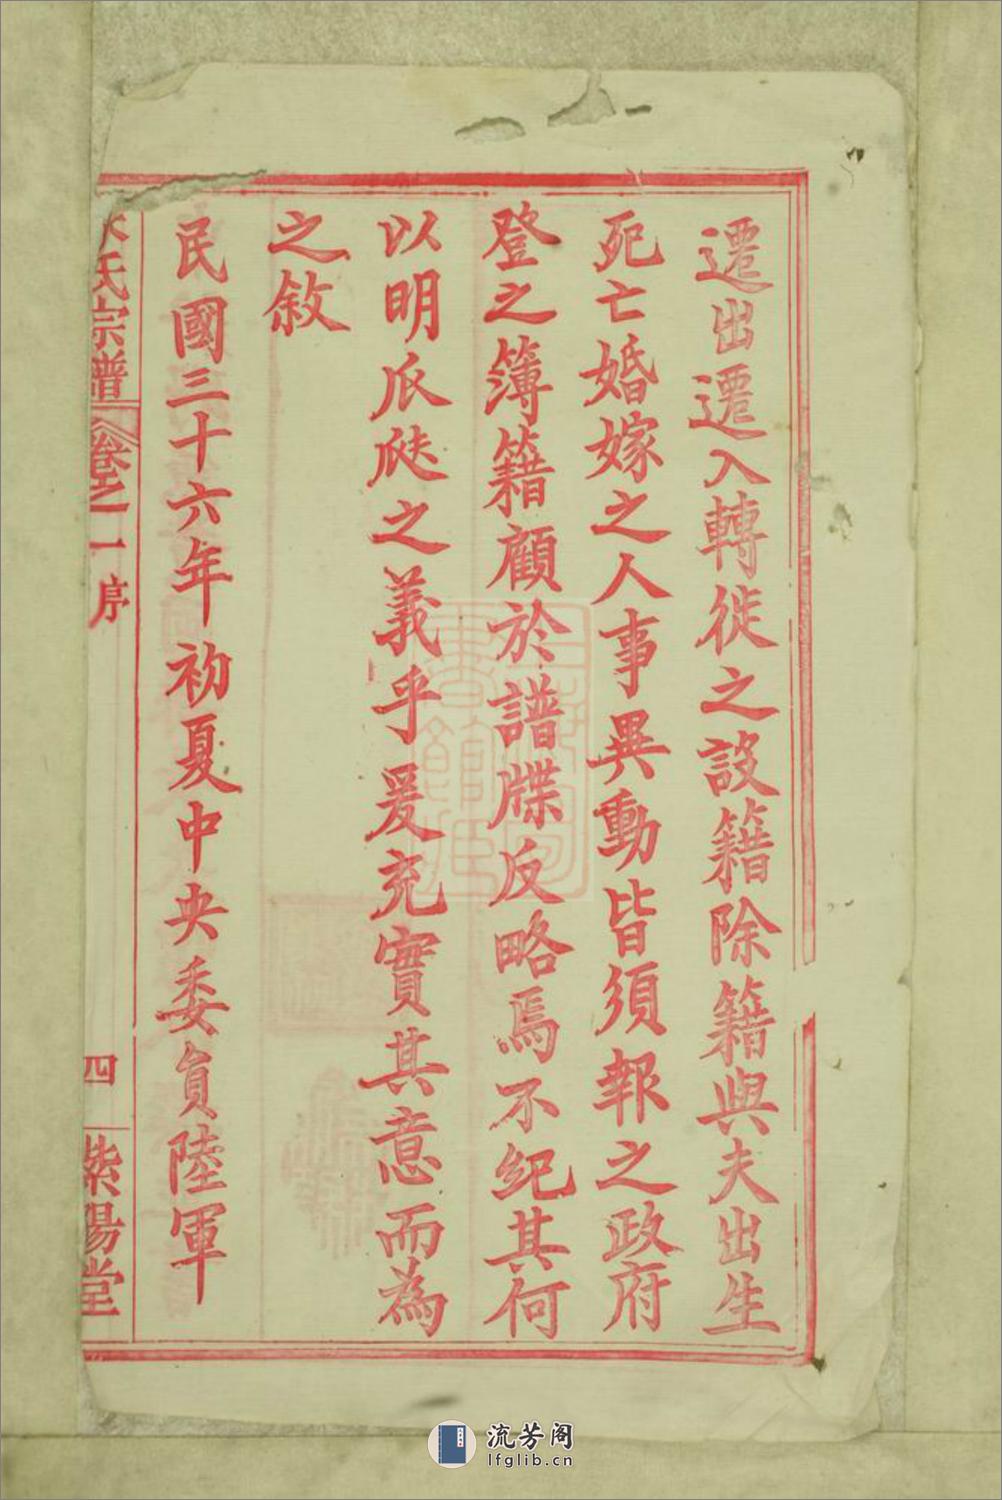 遷出遷入轉徙之設籍除籍與夫出生
死亡婚嫁之人事異動皆須報之政府
登之簿籍顧於譜牒反略焉不紀其何
以明瓜瓞之義乎爰充實其意而為
之敘
民國三十六年初夏中央委員陸軍
氏宗譜
卷之一 序
四
紫陽堂
流芳阁
lfglib.cn